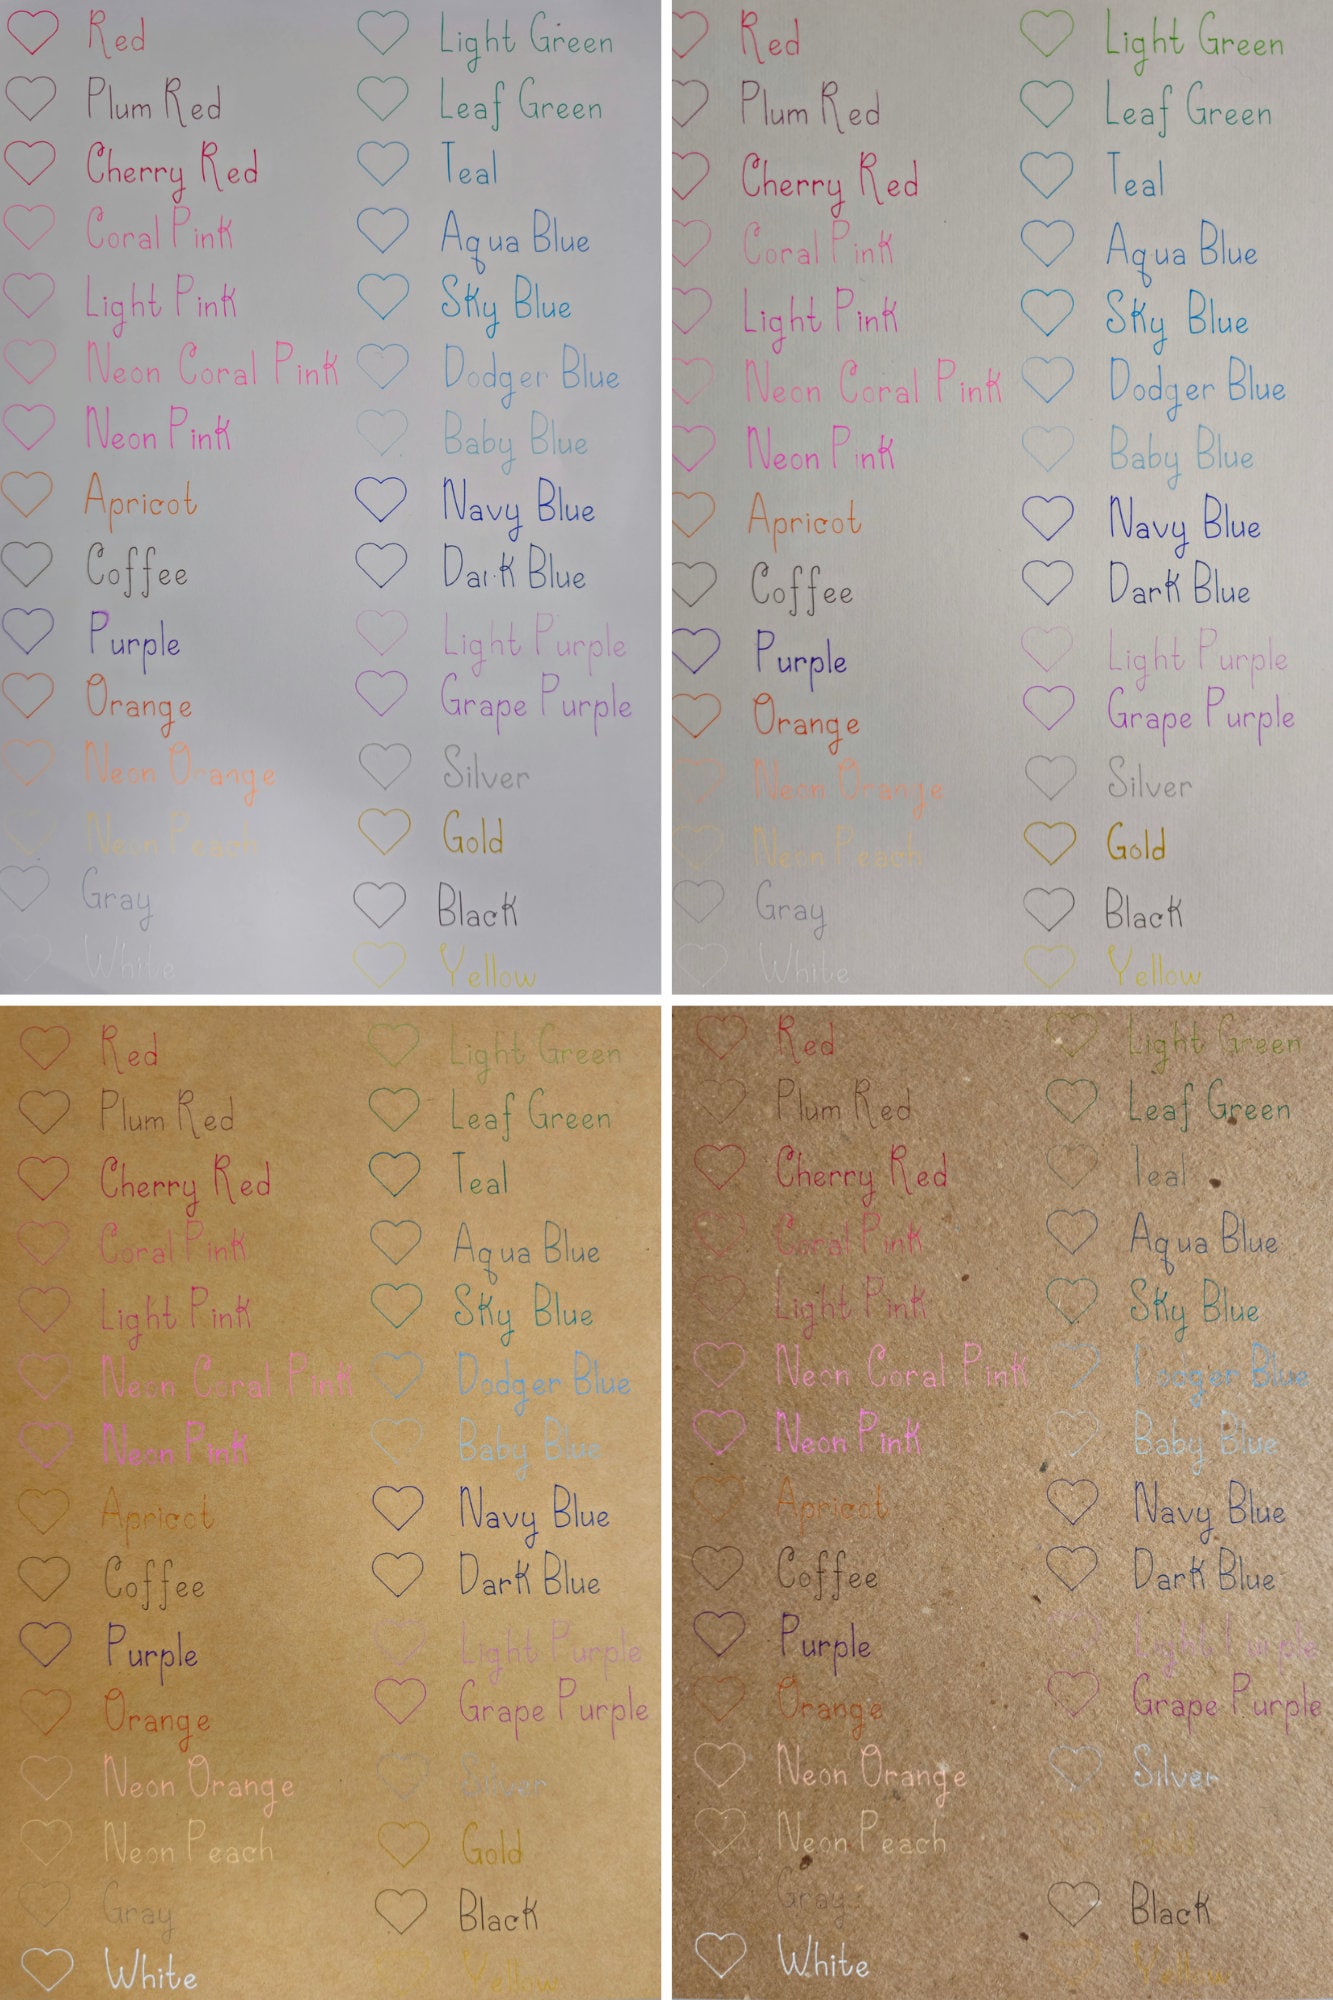 Red
Plum Red
Cherry Red
Coral Pink
Light Pink
Neon Coral Pink
Neon Pink
Apricot
Coffee
Purple
Orange
Neon Orange
Neon Peach
Gray
White
Light Green
Leaf Green
Teal
Aqua Blue
Sky Blue
Dodger Blue
Baby Blue
Navy Blue
Dark Blue
Light Purple
Grape Purple
Silver
Gold
Black
Yellow
Red
Plum Red
Cherry Red
Coral Pink
Light Pink
Neon Coral Pink
Neon Pink
Apricot
Coffee
Purple
Orange
Neon Orange
Neon Peach
Gray
White
Light Green
Leaf Green
Teal
Aqua Blue
Sky Blue
Dodger Blue
Baby Blue
Navy Blue
Dark Blue
Light Purple
Grape Purple
Silver
Gold
Black
Yellow
Red
Plum Red
Cherry Red
Coral Pink
Light Pink
Neon Coral Pink
Neon Pink
Apricot
Coffee
Purple
Orange
Neon Orange
Neon Peach
Gray
White
Light Green
Leaf Green
Teal
Aqua Blue
Sky Blue
Dodger Blue
Baby Blue
Navy Blue
Dark Blue
Light Purple
Grape Purple
Silver
Gold
Black
Yellow
Red
Plum Red
Cherry Red
Coral Pink
Light Pink
Neon Coral Pink
Neon Pink
Apricot
Coffee
Purple
Orange
Neon Orange
Neon Peach
Gray
White
Light Green
Leaf Green
Teal
Aqua Blue
Sky Blue
Dodger Blue
Baby Blue
Navy Blue
Dark Blue
Light Purple
Grape Purple
Silver
Gold
Black
Yellow